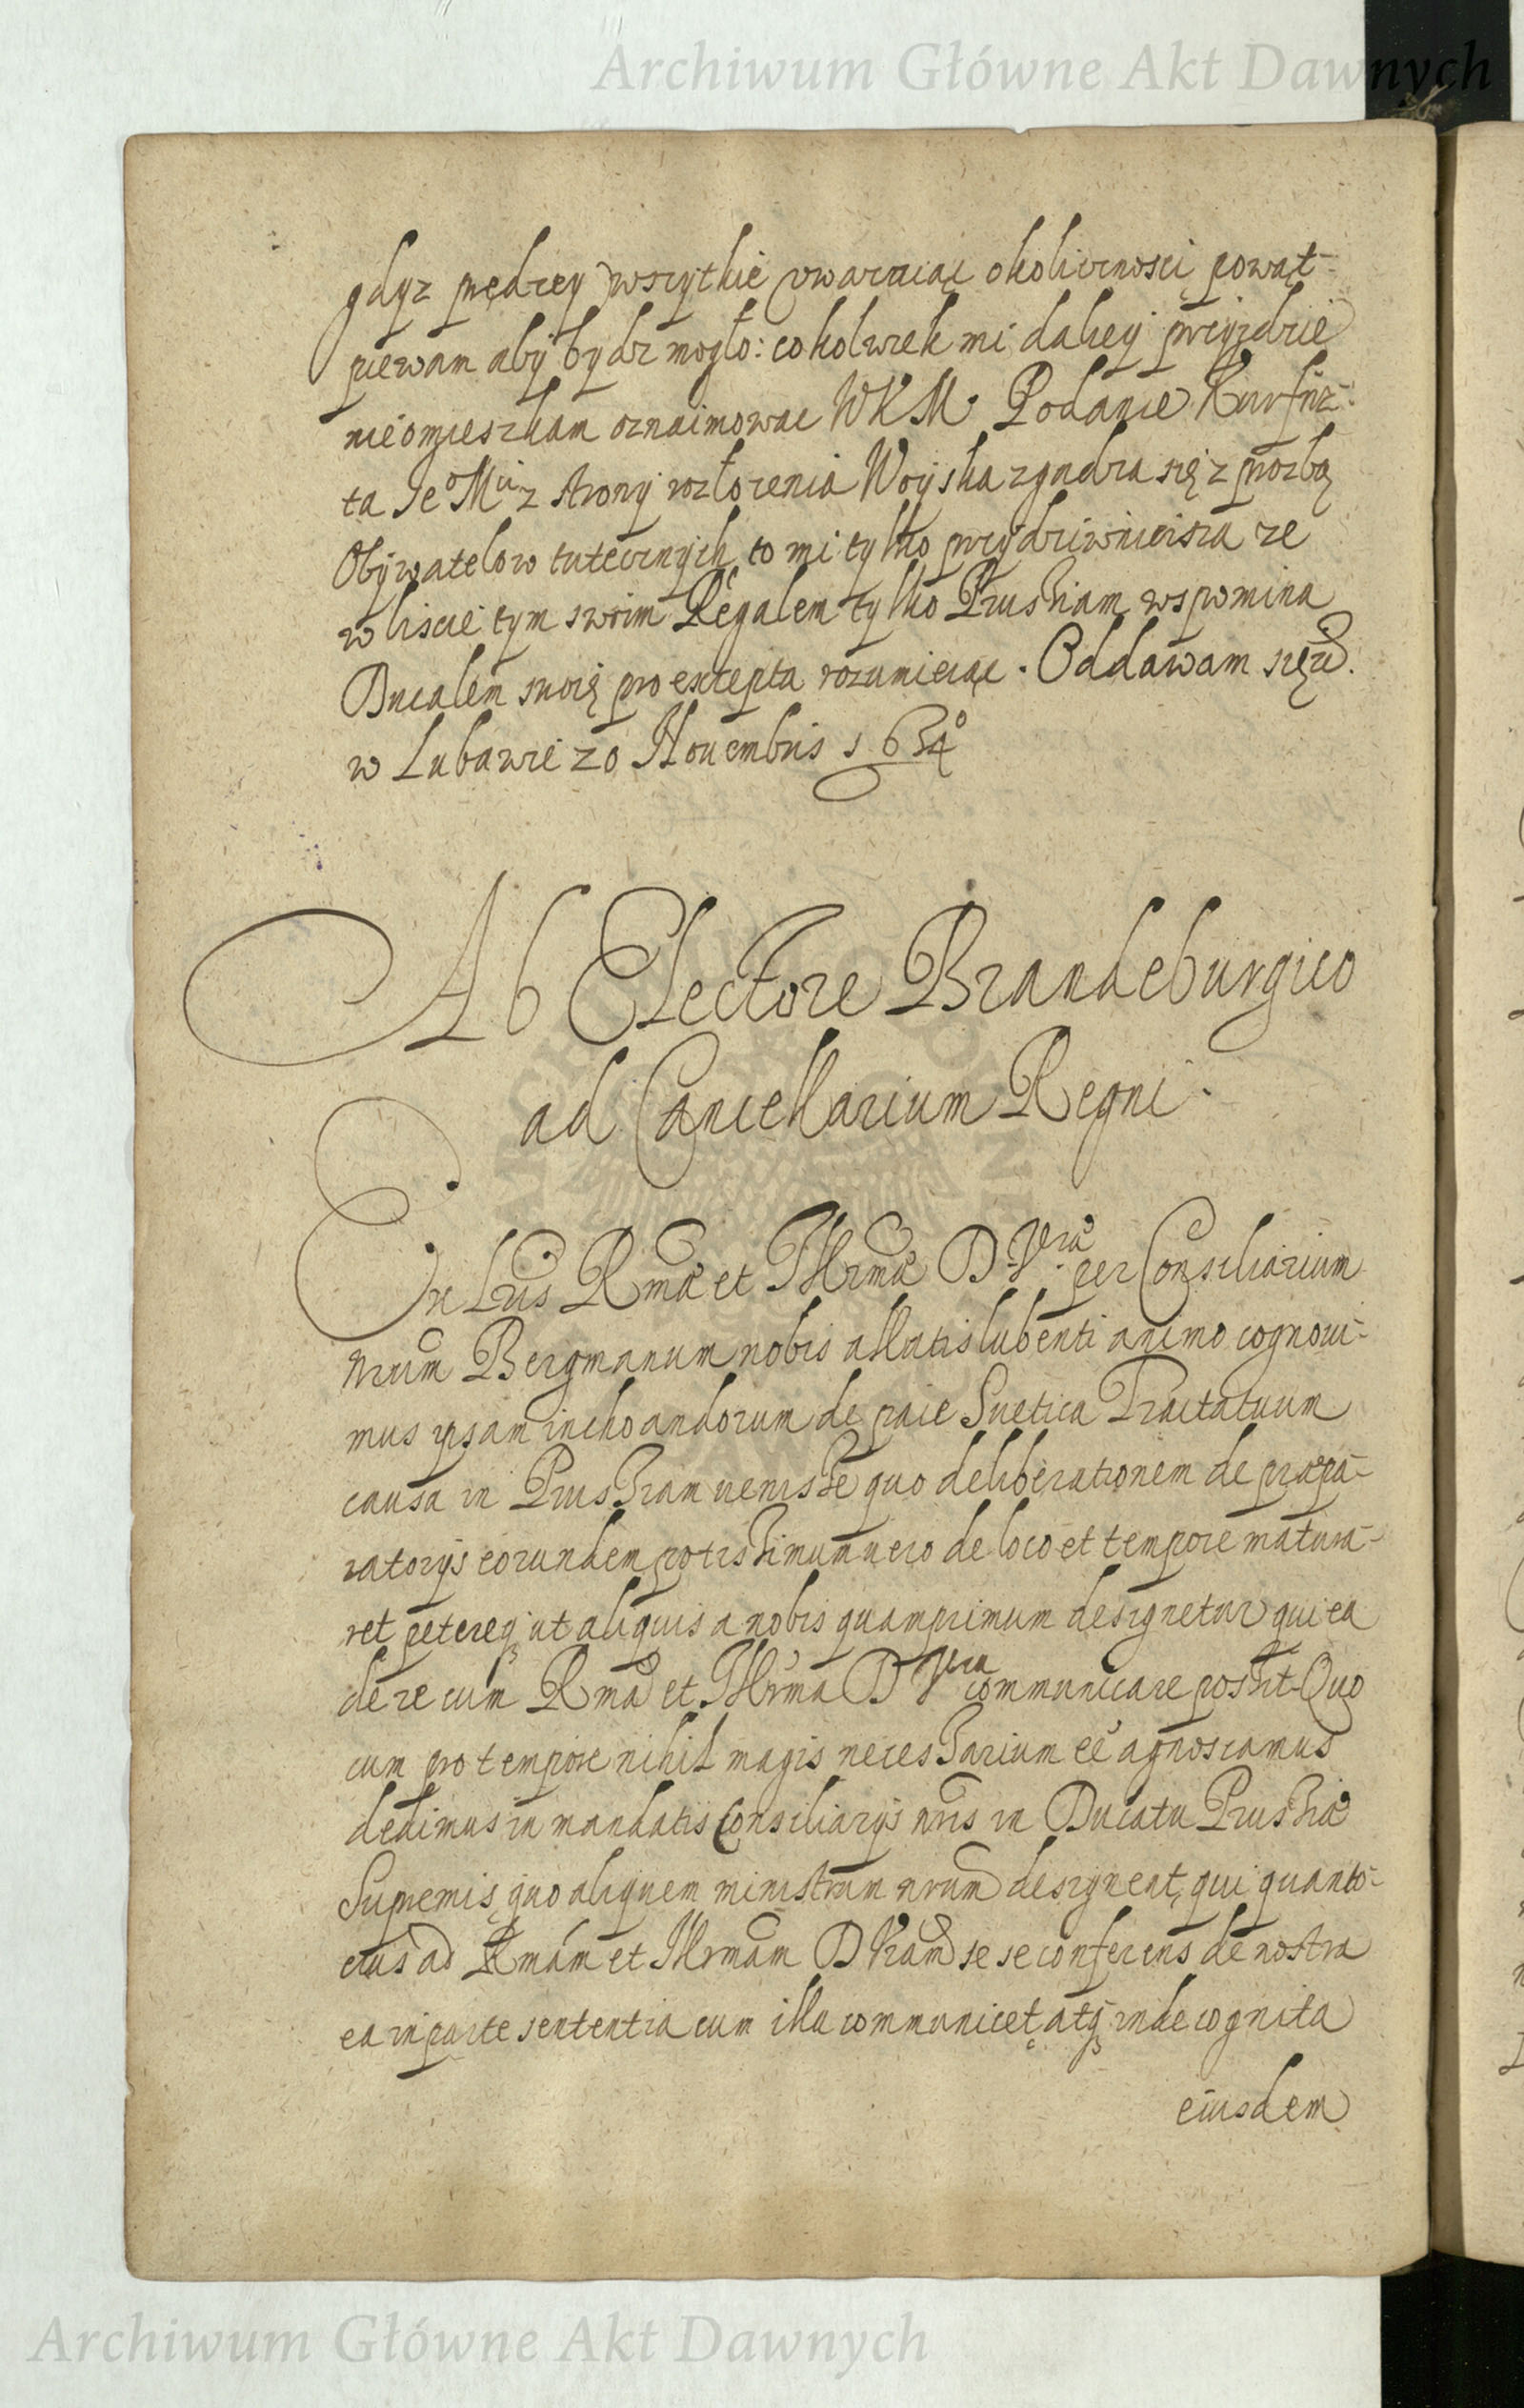 Archiwum Główne Akt Dawnych
gdyz prędzey wszytkie uwazaiąc okolicznosci powąt-
piewam aby bydz mogło: cokolwiek mi daley przyjdzie
nieomieszkam oznaimowac WKM. Podanie Kurfirsz-
ta Je^o M^ci z strony rozłozenia Woyska zgadza się z prozbą
Obywatelow tutecznych, to mi tylko przydziwnieisza ze
w liscie tym swoim Regalem tylko Prussiam wspomina
Ducalem swoię pro excepta rozumieiąc. Oddawam się
w Lubawie 20 Nouembris 1634°
Ab Electore Brandeburgico
ad Cancellarium Regni.
Ex Lris Rmae et Illrmae D. Vrae per Consiliarium
nrum Bergmanum nobis allatis lubenti animo cognoui-
mus ipsam inchoandorum de pace Suetica Tractatuum
causa in Prussiam uenisse quo deliberationem de praepa-
ratorijs eorundem potissimum uero de loco et tempore matura-
ret petereq ut aliquis a nobis quamprimum designetur qui ea
de re cum Rma et Illrma D Vra communicare possit. Quo
cum pro tempore nihil magis necessarium eē agnoscamus
dedimus in mandatis Consiliarijs nris in Ducatu Prussiae
Supremis, quo aliquem ministrum nrum designent, qui quanto-
cius ad Rmam et Illrmam D Vram se se conferens de nostra
ea in parte sententia cum illa communicet, atq inde cognita
eiusdem
Archiwum Główne Akt Dawnych